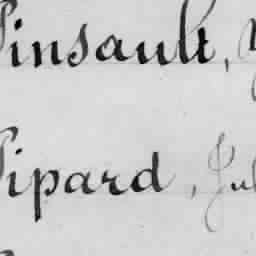 Pinsault,
Pipard, Jul